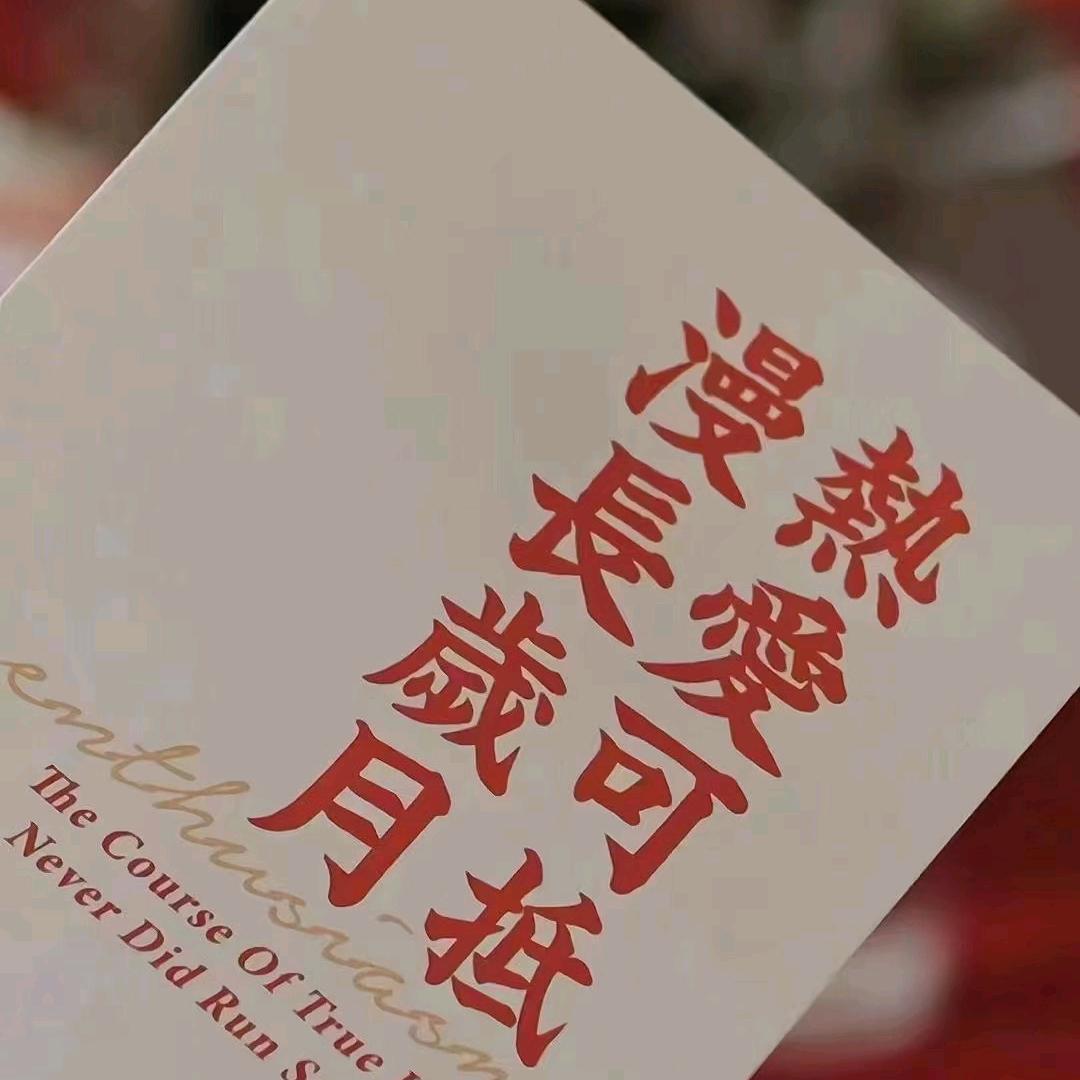 熱愛可抵
漫長歲月
enthusiasm
The Course Of True
Never Did Run